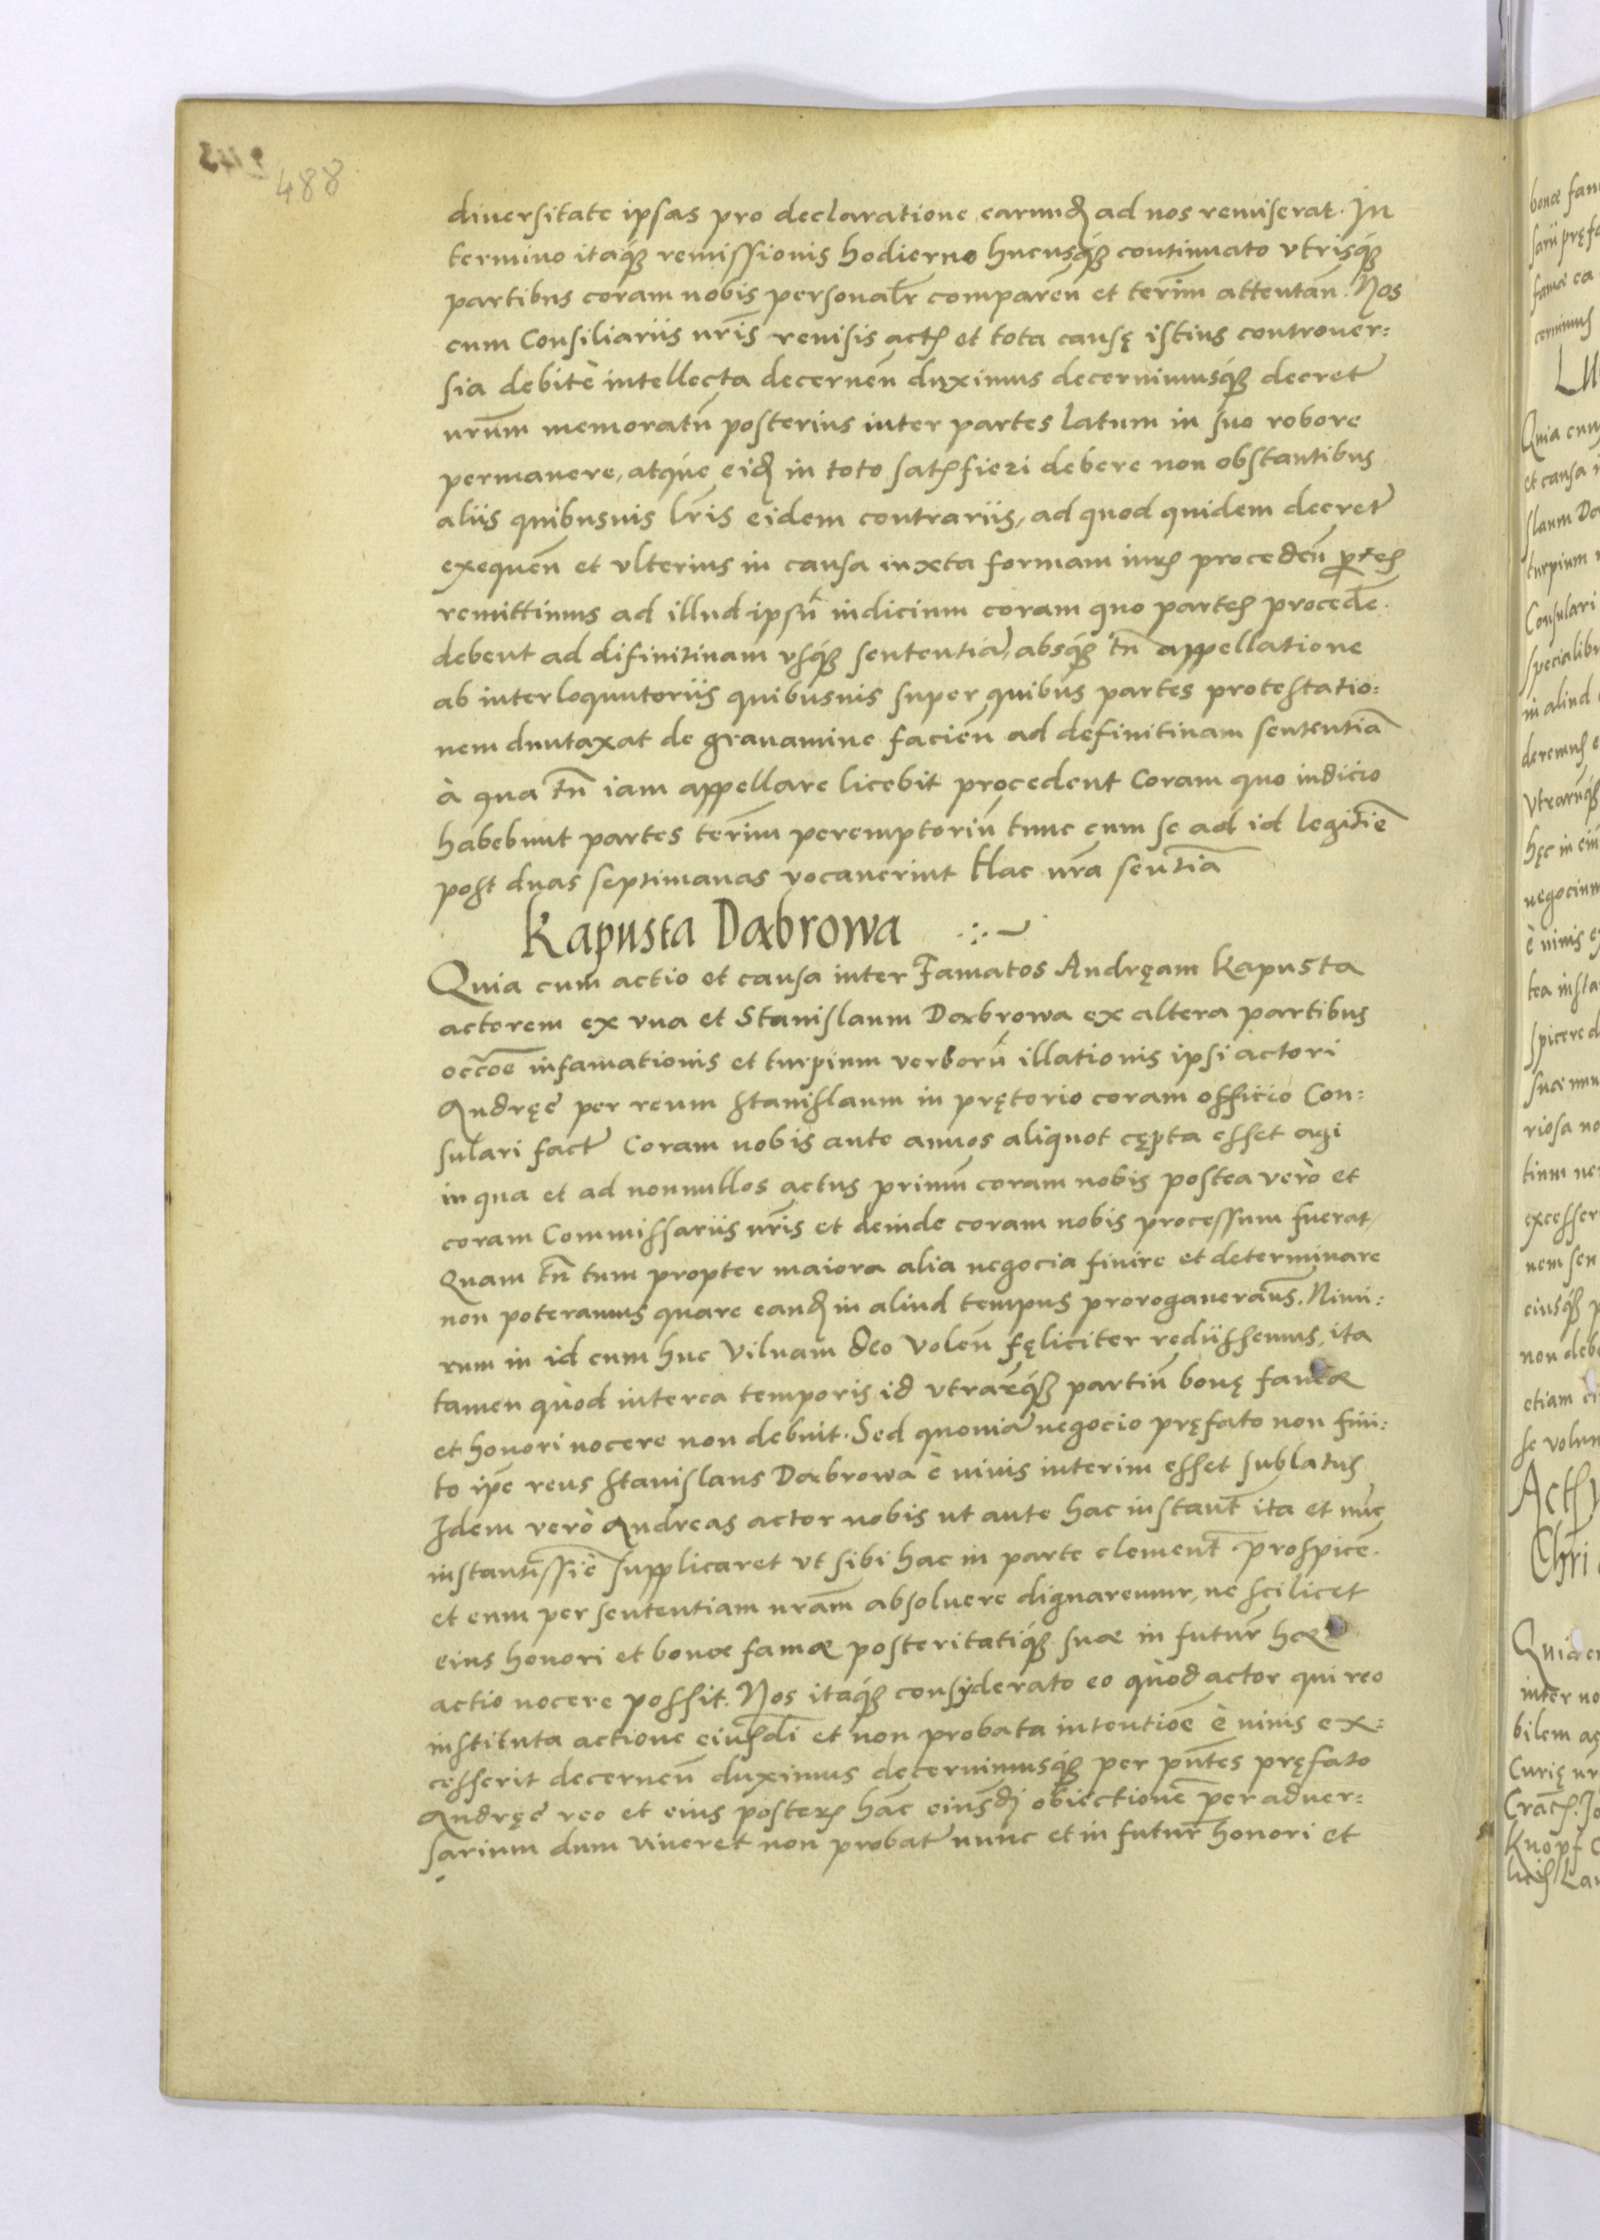 488
diuersitate ipsas pro declaratione earund ad nos remiserat. In
termino itaq remissionis hodierno hucusq continuato vtrisq
partibus coram nobis personalr comparen et termin attentan. Nos
cum Consiliariis nris reuisis actis et tota causę istius controuer:
sia debitè intellecta decernen duximus decernimusq decret
nrum memoratu posterius inter partes latum in suo robore
permanere, atque eid in toto satisfieri debere non obstantibus
aliis quibusuis lris eidem contrariis, ad quod quidem decret
exequen et vlterius in causa iuxta formam iuris proceden partes
remittimus ad illud ipsu iudicium coram quo partes procede.
debent ad difinitiuam vsq sententia, absq tn appellatione
ab interloquutoriis quibusuis super quibus partes protestatio:
nem duntaxat de grauamine facien ad definitiuam sententia
à qua tn iam appellare licebit procedent Coram quo iudicio
habebunt partes termin peremptoriu tunc cum se ad id legitie
post duas septimanas vocauerint Hac nra sentia
Kapusta Dabrowa
Quia cum actio et causa inter Famatos Andręam Kapusta
actorem ex vna et Stanislaum Dabrowa ex altera partibus
occoe infamationis et turpium verboru illationis ipsi actori
Andręę per reum Stanislaum in prętorio coram officio Con:
sulari fact Coram nobis ante annos aliquot cępta esset agi
in qua et ad nonnullos actus primu coram nobis postea verò et
coram Commissariis nris et deinde coram nobis processum fuerat,
Quam tn tum propter maiora alia negocia finire et determinare
non poteramus quare eand in aliud tempus prorogaueramus. Nimi:
rum in id cum huc Vilnam deo volen fęliciter rediissemus, ita
tamen quòd interea temporis id vtrarq partiu bonę famæ
et honori nocere non debuit. Sed quonia negocio pręfato non fini:
to ipe reus Stanislaus Dabrowa è viuis interim esset sublatus
Idem verò Andreas actor nobis ut ante hac instant ita et nuc
instantissie supplicaret vt sibi hac in parte clement prospice.
et eum per sententiam nram absoluere dignaremur, ne scilicet
eius honori et bonæ famæ posteritatiq suæ in futur hæc
actio nocere possit. Nos itaq consyderato eo quòd actor qui reo
instituta actione eiusdi et non probata intentioe è viuis ex:
cesserit decernen duximus decernimusq per pntes pręfato
Andręę reo et eius posteris hac eiusdi obiectione per aduer:
sarium dum viueret non probat nunc et in futur honori et